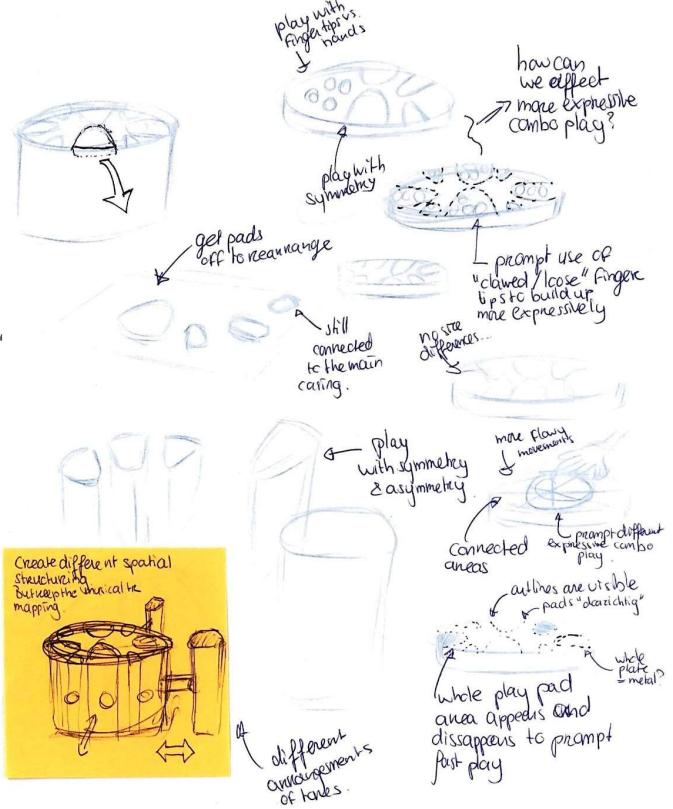 play with
fingertips vs.
hands
how can
we affect
more expressive
combo play?
play with
symmetry
get pads
off to rearrange
prompt use of
"clawed/loose" finger
tips to build up
more expressively
still
connected
to the main
casing.
no size
differences...
play
with symmetry
& asymmetry
more flowy
movements
connected
areas
prompt different
expressive combo
play.
Create different spatial
structuring
but keep the
mapping.
outlines are visible
pads "doorzichtig"
whole
plate
= metal?
whole play pad
area appears and
dissappears to prompt
fast play
different
arrangements
of tones.